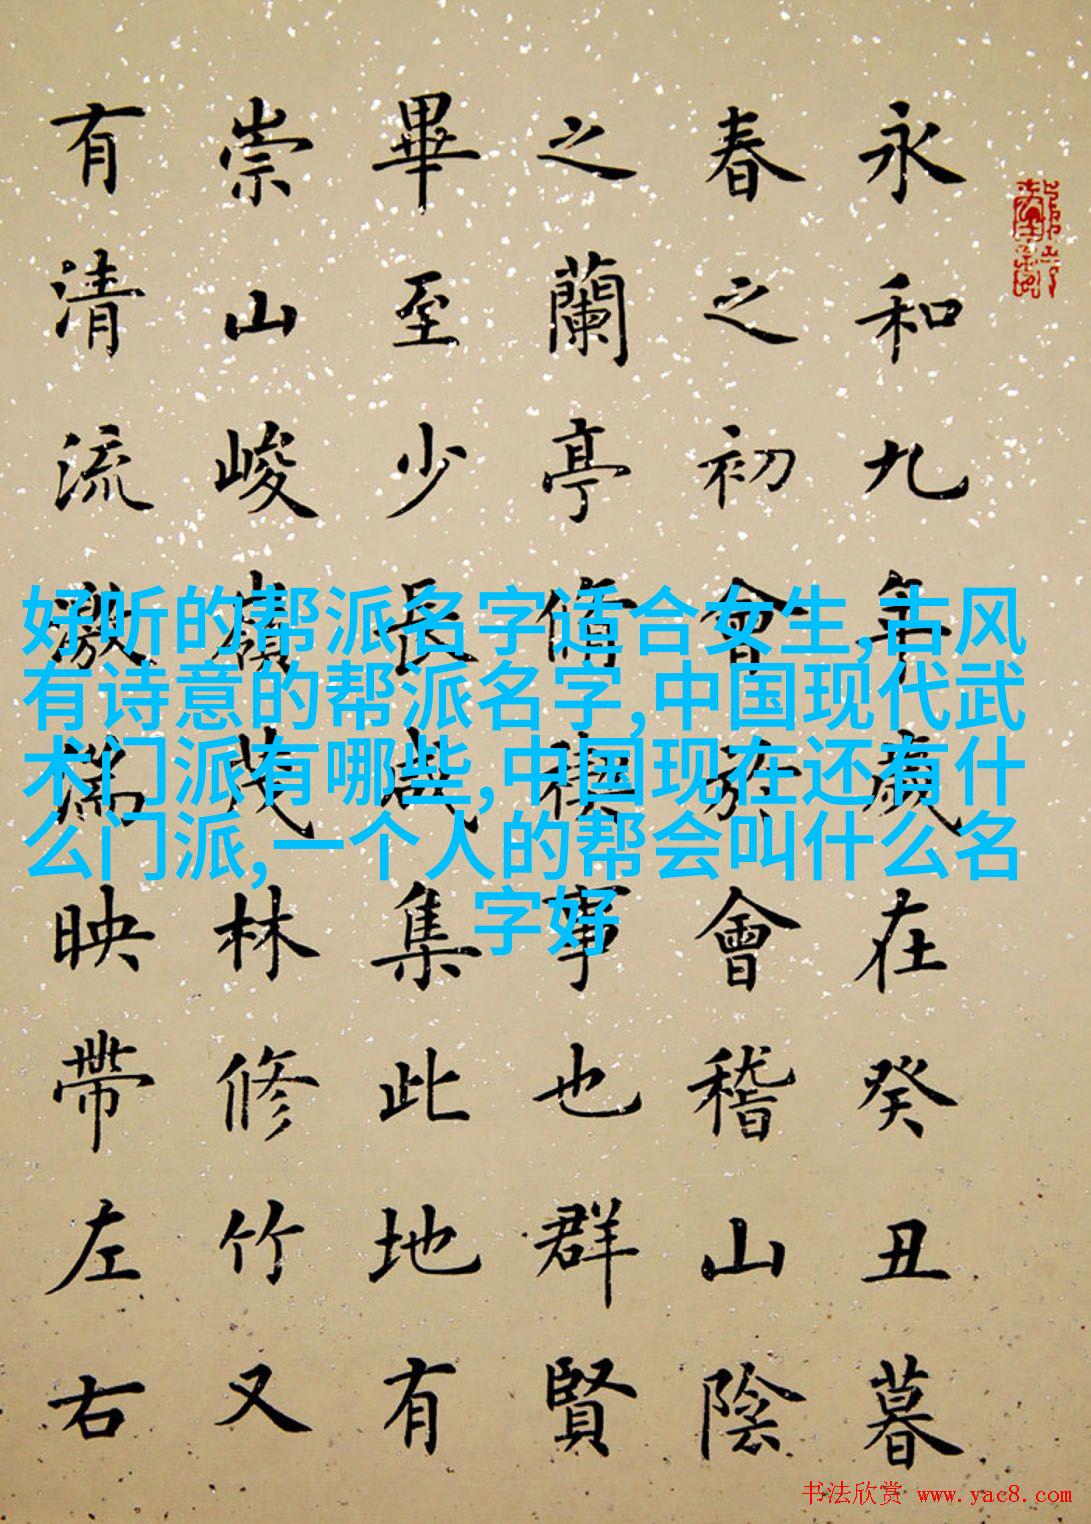 永和九年歲在癸丑暮
春之初會於會稽山陰
之蘭亭脩禊事也群賢
畢至少長咸集此地有
崇山峻嶺茂林修竹又
有清流激湍映帶左右
好听的帮派名字适合女生,古风
有诗意的帮派名字,中国现代武
术门派有哪些,中国现在还有什
么门派,一个人的帮会叫什么名
字好
书法欣赏 www.yac8.com